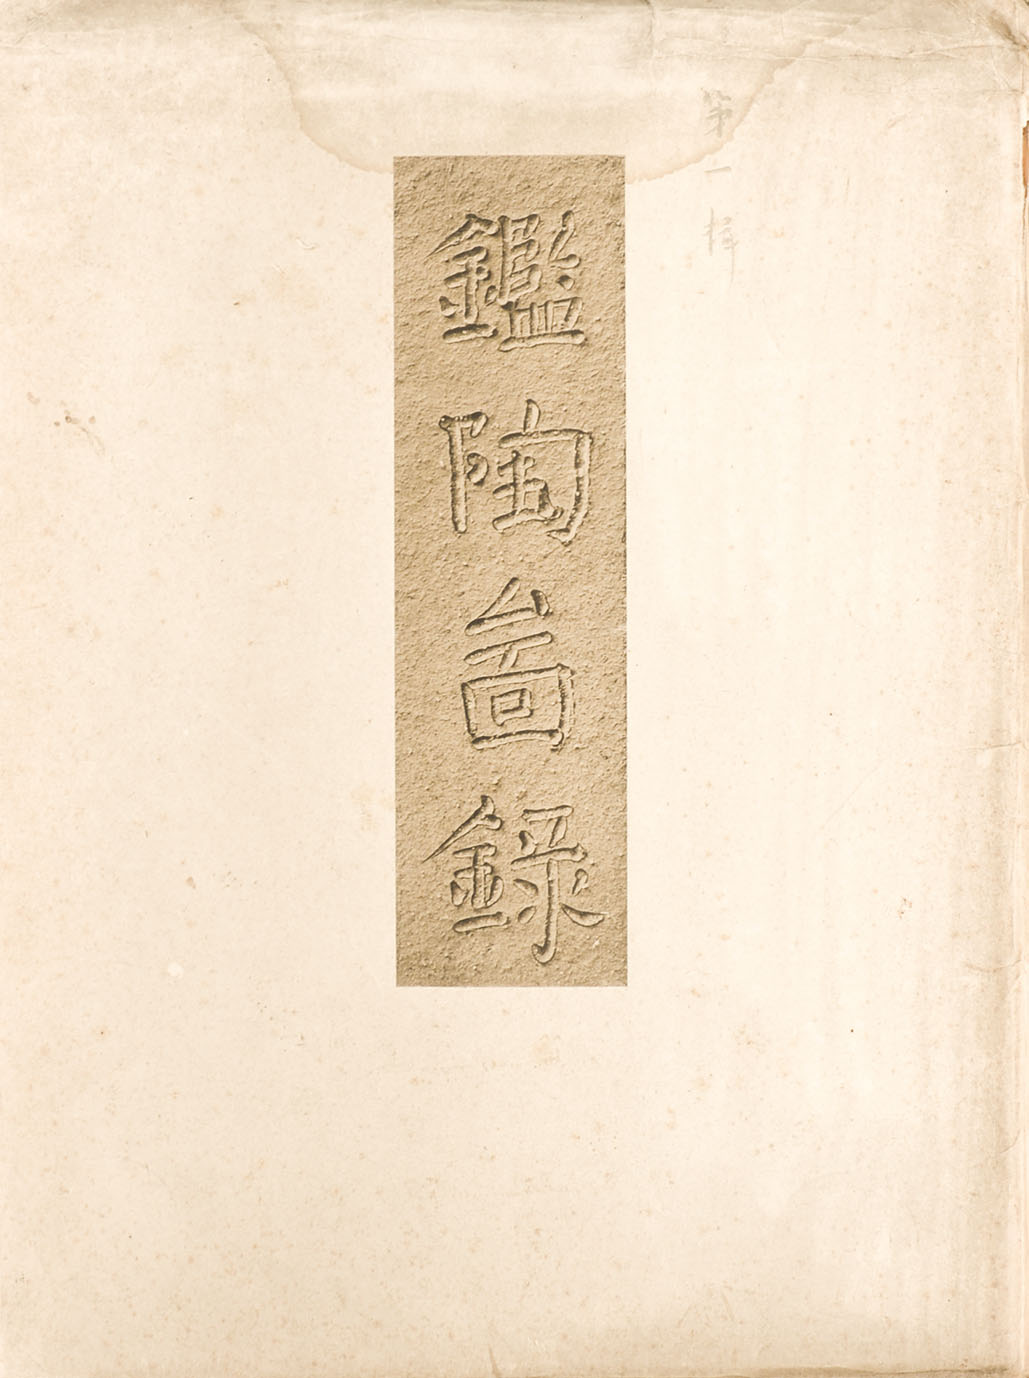 第一輯
鑑陶啚錄